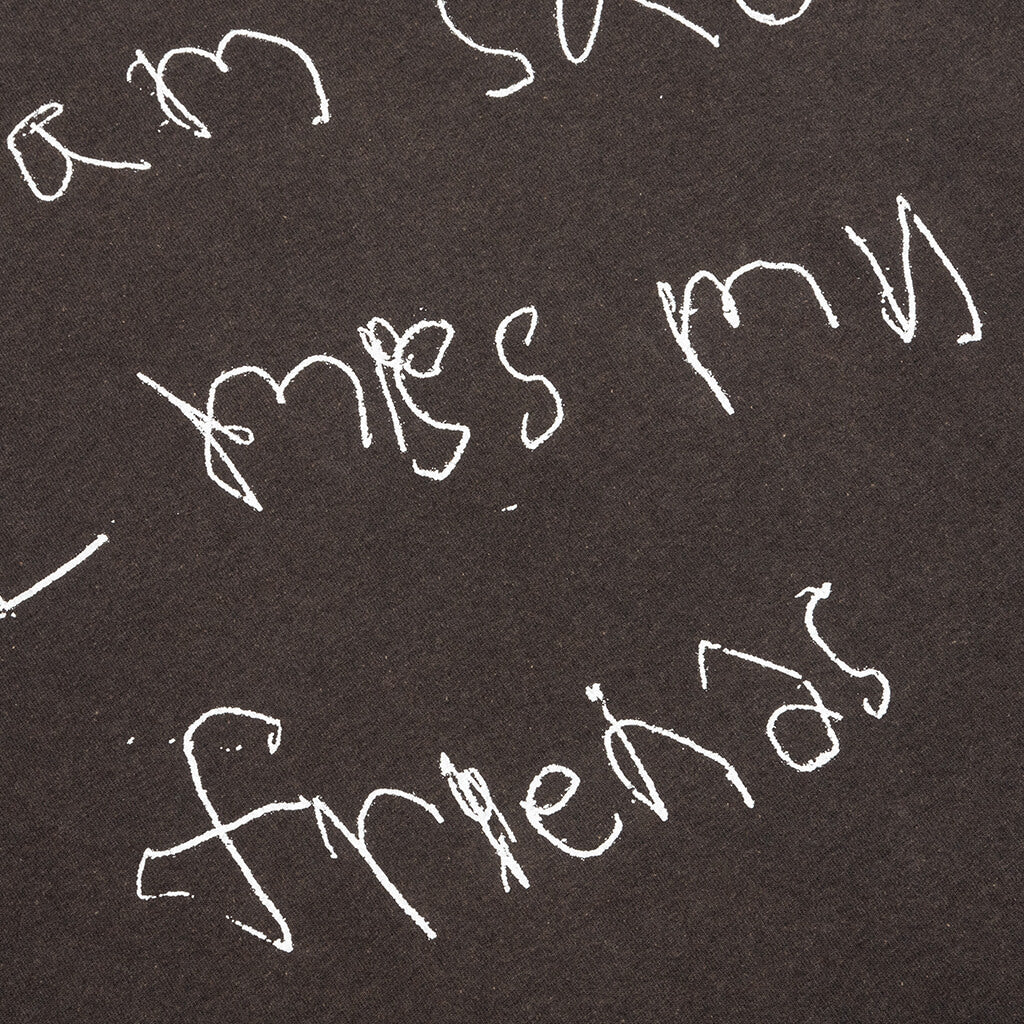 am
miss my
friends